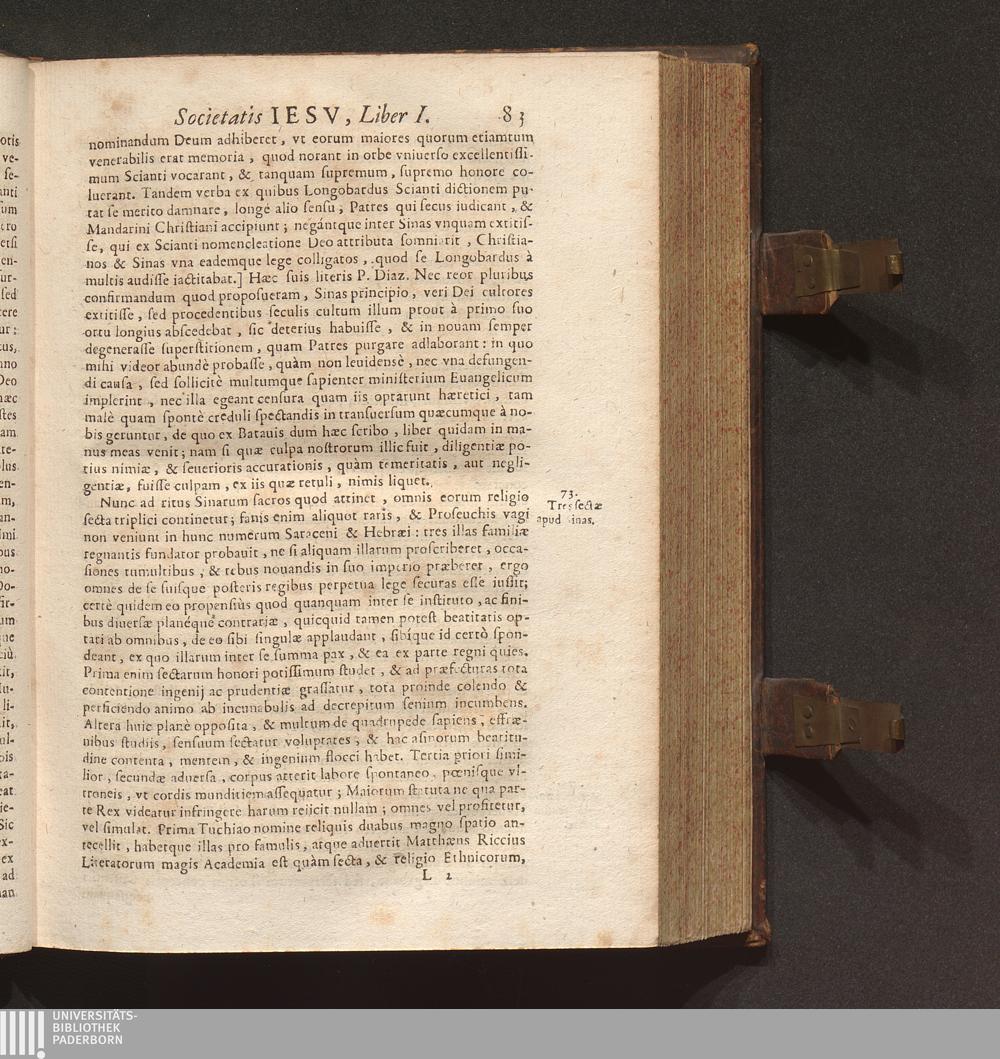 Societatis IESV, Liber I. 83
nominandum Deum adhiberet, vt eorum maiores quorum etiamtum
venerabilis erat memoria, quod norant in orbe vniuerso excellentissi-
mum Scianti vocarant, & tanquam supremum, supremo honore co-
luerant. Tandem verba ex quibus Longobardus Scianti dictionem pu-
tat se merito damnare, longè alio sensu, Patres qui secus iudicant, &
Mandarini Christiani accipiunt; negántque inter Sinas vnquam extitis-
se, qui ex Scianti nomencleatione Deo attributa somniarit, Christia-
nos & Sinas vna eademque lege colligatos, quod se Longobardus à
multis audisse iactitabat.] Hæc suis literis P. Diaz. Nec reor pluribus
confirmandum quod proposueram, Sinas principio, veri Dei cultores
extitisse, sed procedentibus seculis cultum illum prout à primo suo
ortu longius abscedebat, sic deterius habuisse, & in nouam semper
degenerasse superstitionem, quam Patres purgare adlaborant: in quo
mihi videor abundè probasse, quàm non leuidensè, nec vna defungen-
di causa, sed sollicitè multumque sapienter ministerium Euangelicum
implerint, nec illa egeant censura quam iis optarunt hæretici, tam
malè quam spontè creduli spectandis in transuersum quæcumque à no-
bis geruntur, de quo ex Batauis dum hæc scribo, liber quidam in ma-
nus meas venit; nam si quæ culpa nostrorum illic fuit, diligentiæ po-
tius nimiæ, & seuerioris accurationis, quàm temeritatis, aut negli-
gentiæ, fuisse culpam, ex iis quæ retuli, nimis liquet.
Nunc ad ritus Sinarum sacros quod attinet, omnis eorum religio
secta triplici continetur; fanis enim aliquot raris, & Proseuchis vagi
non veniunt in hunc numerum Saraceni & Hebræi: tres illas familiæ
regnantis fundator probauit, ne si aliquam illarum proscriberet, occa-
siones tumultibus, & rebus nouandis in suo imperio præberet, ergo
omnes de se suisque posteris regibus perpetua lege securas esse iussit;
certè quidem eo propensiùs quod quanquam inter se instituto, ac fini-
bus diuersæ planéque contrariæ, quicquid tamen potest beatitatis op-
tari ab omnibus, de eo sibi singulæ applaudant, sibíque id certò spon-
deant, ex quo illarum inter se summa pax, & ea ex parte regni quies.
Prima enim sectarum honori potissimum studet, & ad præfecturas tota
contentione ingenij ac prudentiæ grassatur, tota proinde colendo &
perficiendo animo ab incunabulis ad decrepitum senium incumbens.
Altera huic planè opposita, & multum de quadrupede sapiens, effræ-
nibus studiis, sensuum sectatur voluptates, & hac asinorum beatitu-
dine contenta, mentem, & ingenium flocci habet. Tertia priori simi-
lior, secundæ aduersa, corpus atterit labore spontaneo, pœnisque vl-
troneis, vt cordis munditiem assequatur; Maiorum statuta ne qua par-
te Rex videatur infringere harum reiicit nullam; omnes vel profitetur,
vel simulat. Prima Tuchiao nomine reliquis duabus magno spatio an-
tecellit, habetque illas pro famulis, atque aduertit Matthæus Riccius
Literatorum magis Academia est quàm secta, & religio Ethnicorum,
L 2
73.
Tres sectæ
apud Sinas.
UNIVERSITÄTS-
BIBLIOTHEK
PADERBORN